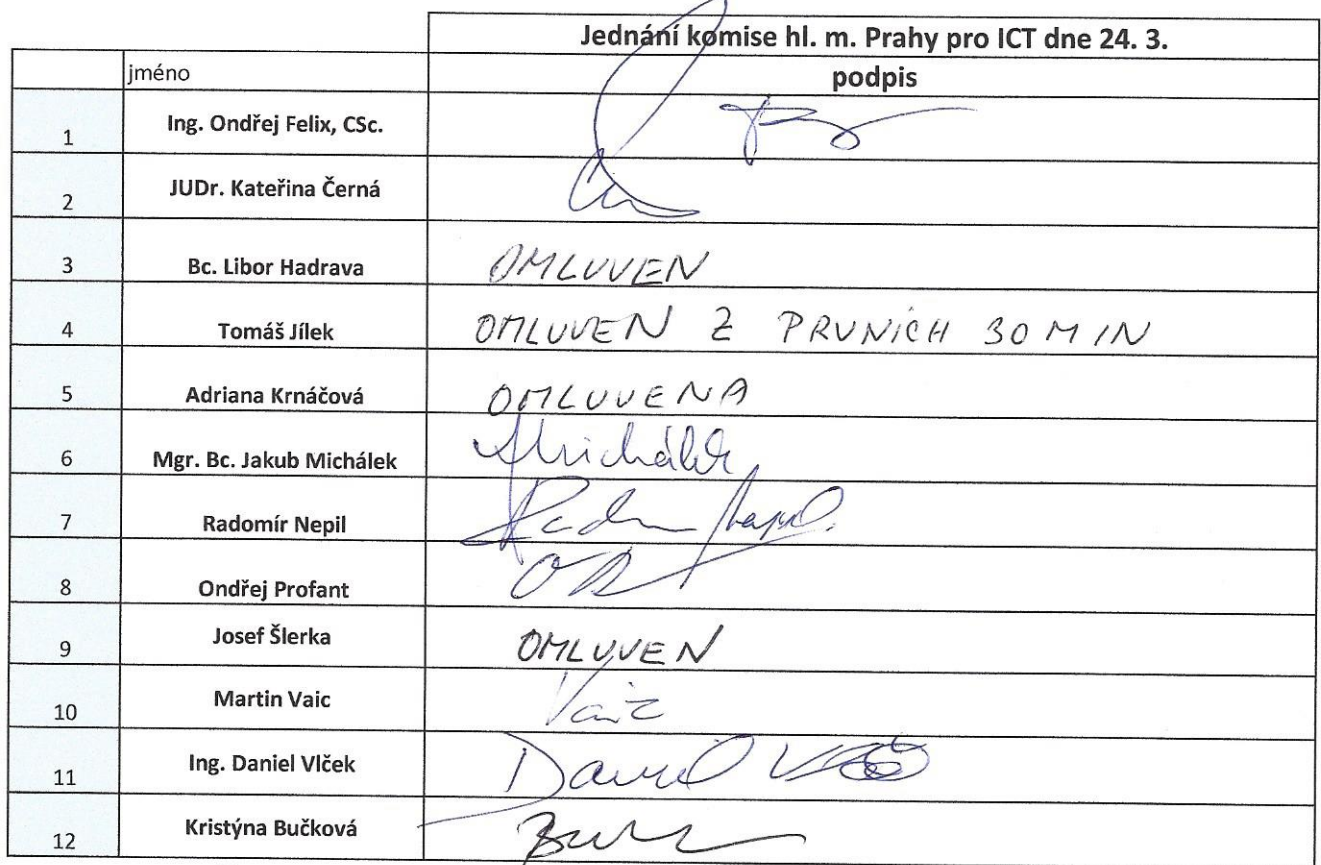 Jednání komise hl. m. Prahy pro ICT dne 24. 3.
jméno podpis
1 Ing. Ondřej Felix, CSc.
2 JUDr. Kateřina Černá
3 Bc. Libor Hadrava OMLUVEN
4 Tomáš Jílek OMLUVEN Z PRVNÍCH 30 MIN
5 Adriana Krnáčová OMLUVENA
6 Mgr. Bc. Jakub Michálek Michálek
7 Radomír Nepil
8 Ondřej Profant
9 Josef Šlerka OMLUVEN
10 Martin Vaic Vaic
11 Ing. Daniel Vlček Daniel
12 Kristýna Bučková